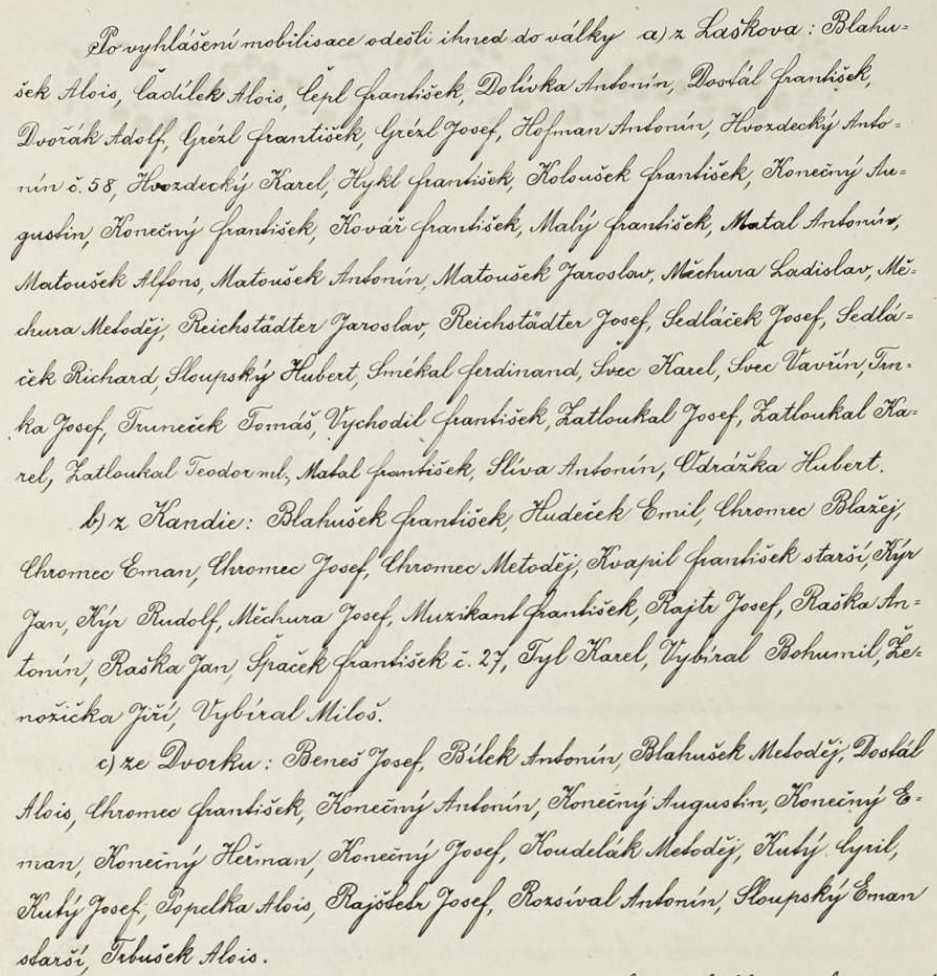 Po vyhlášení mobilisace odešli ihned do války a) z Laškova: Blahu=
šek Alois, Čadílek Alois, Čepl František, Dolívka Antonín, Dostál František,
Dvořák Adolf, Grézl František, Grézl Josef, Hofman Antonín, Hvozdecký Anto=
nín č. 58, Hvozdecký Karel, Hykl František, Koloušek František, Konečný Au=
gustin, Konečný František, Kovář František, Malý František, Matal Antonín,
Matoušek Alfons, Matoušek Antonín, Matoušek Jaroslav, Měchura Ladislav, Mě=
chura Metoděj, Reichstädter Jaroslav, Reichstädter Josef, Sedláček Josef, Sedlá=
ček Richard, Sloupský Hubert, Smékal Ferdinand, Švec Karel, Švec Vavřín, Trn=
ka Josef, Truneček Tomáš, Vychodil František, Zatloukal Josef, Zatloukal Ka=
rel, Zatloukal Teodor ml., Matal František, Slíva Antonín, Odrážka Hubert.
b) z Kandie: Blahušek František, Hudeček Emil, Chromec Blažej,
Chromec Eman, Chromec Josef, Chromec Metoděj, Kvapil František starší, Kýr
Jan, Kýr Rudolf, Měchura Josef, Muzikant František, Rajtr Josef, Raška An=
tonín, Raška Jan, Špaček František č. 27, Tyl Karel, Vybíral Bohumil, Že=
nožička Jiří, Vybíral Miloš.
c) ze Dvorku: Beneš Josef, Bílek Antonín, Blahušek Metoděj, Dostál
Alois, Chromec František, Konečný Antonín, Konečný Augustin, Konečný E=
man, Konečný Heřman, Konečný Josef, Koudelák Metoděj, Kutý Cyril,
Kutý Josef, Popelka Alois, Rajštetr Josef, Rozsíval Antonín, Sloupský Eman
starší, Trbušek Alois.